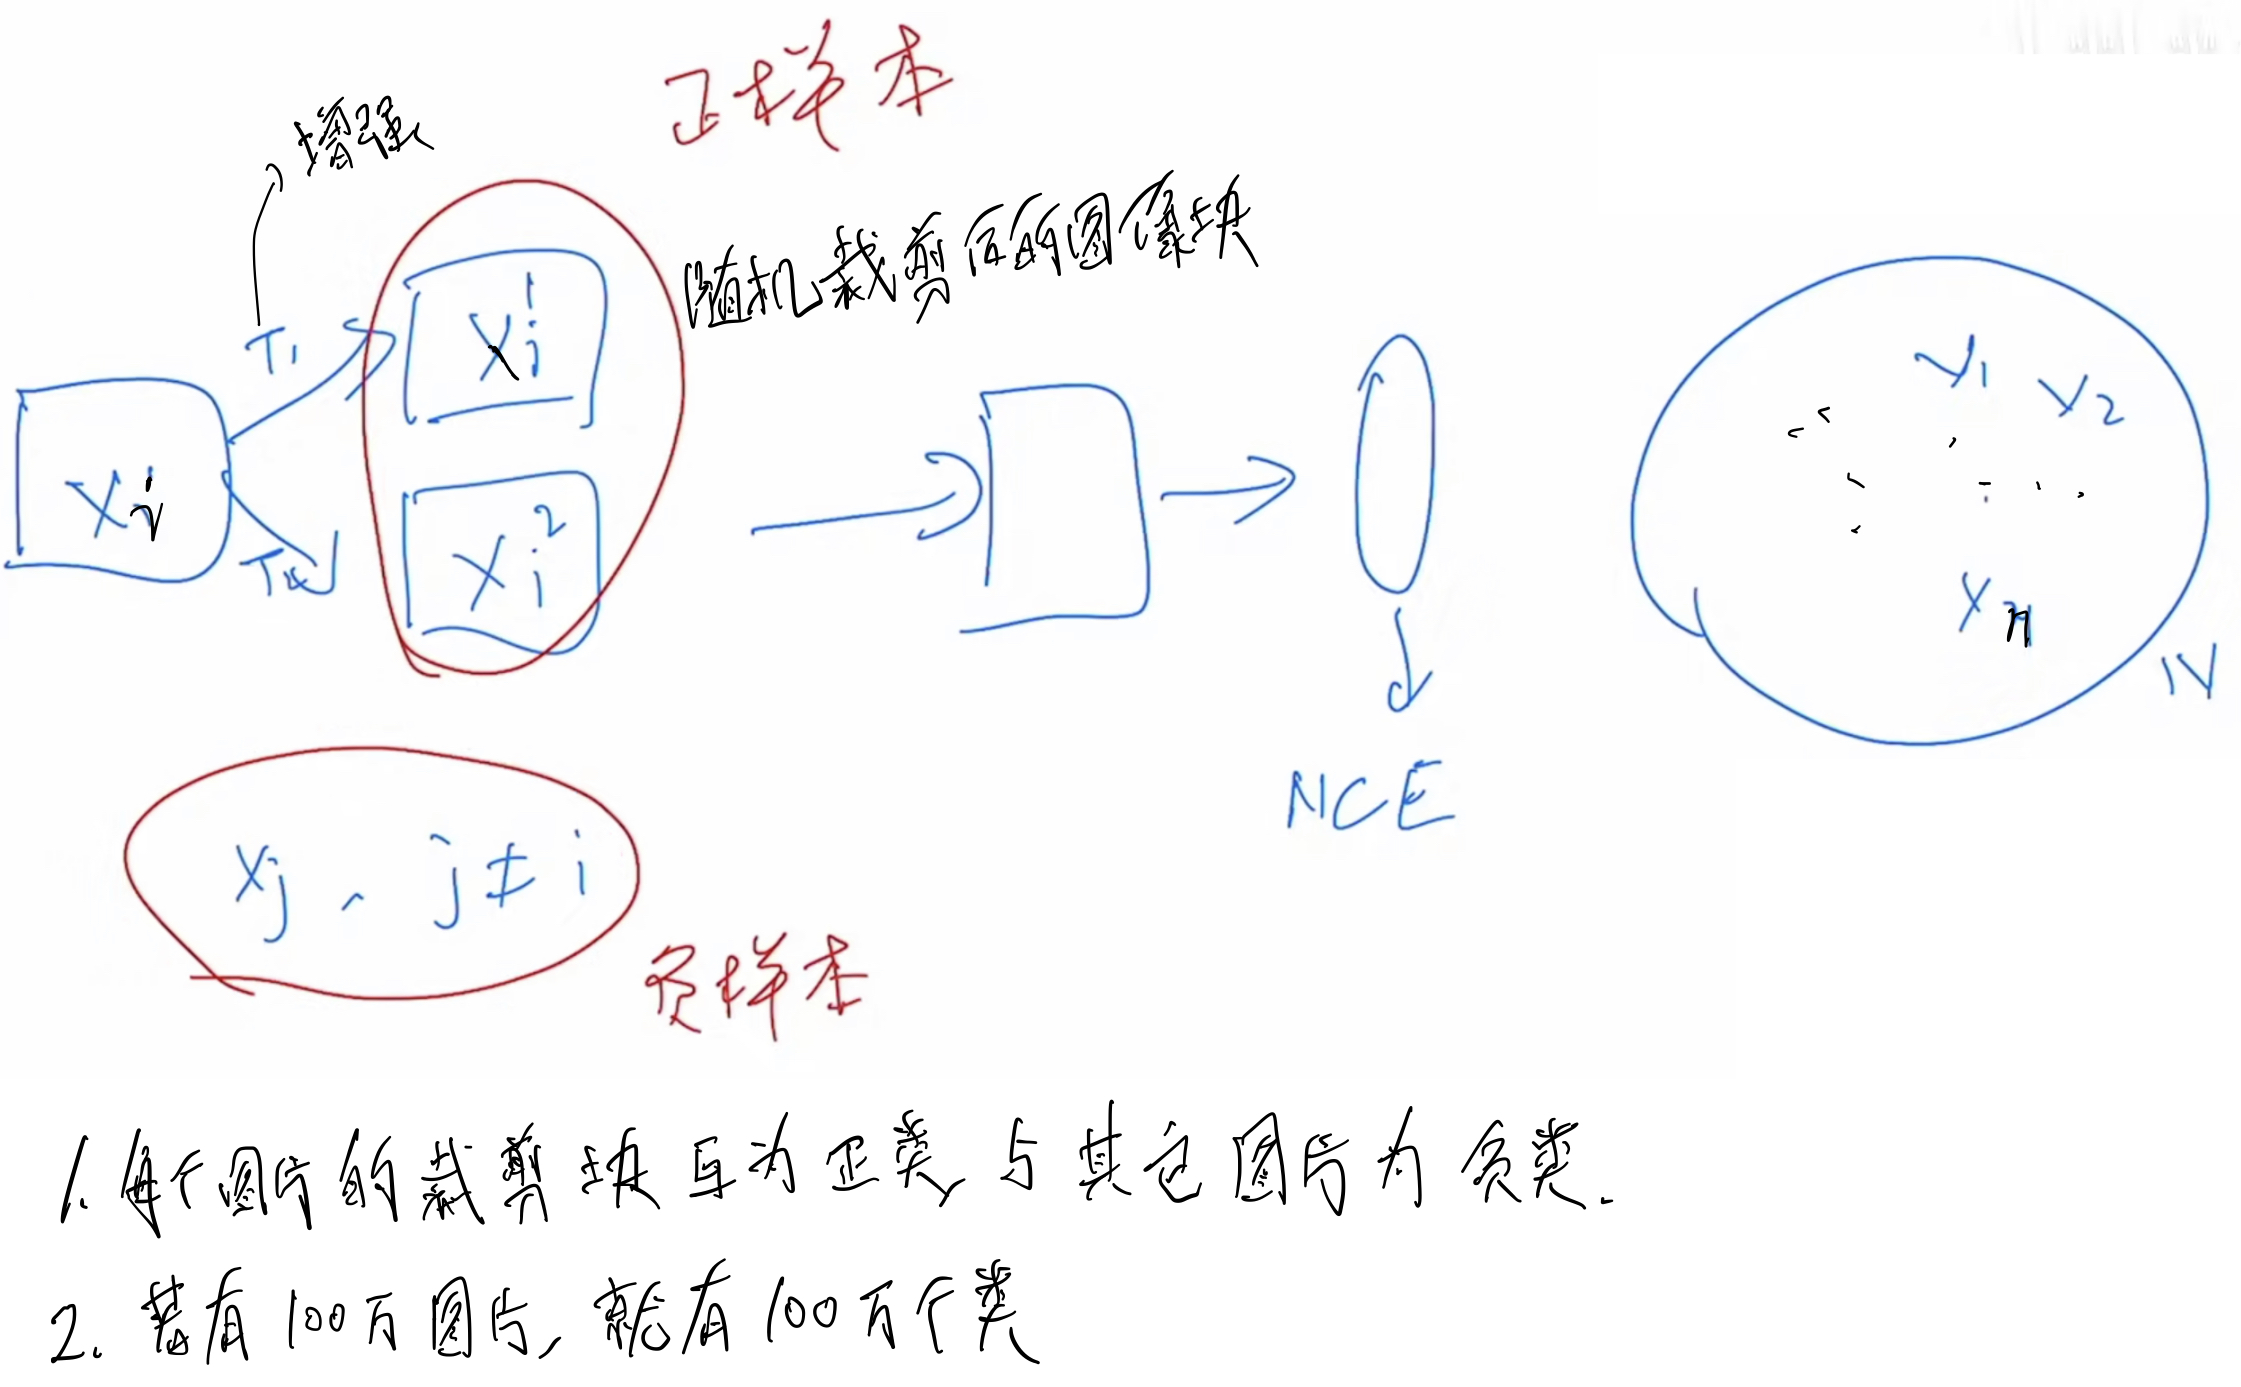 正样本
增强
随机裁剪后的图像块
T1
Xi1
Xi
T2
Xi2
X1
X2
Xn
IN
NCE
Xj, j≠i
负样本
1. 每个图片的裁剪块互为正类, 与其它图片为负类.
2. 若有100万图片, 就有100万个类